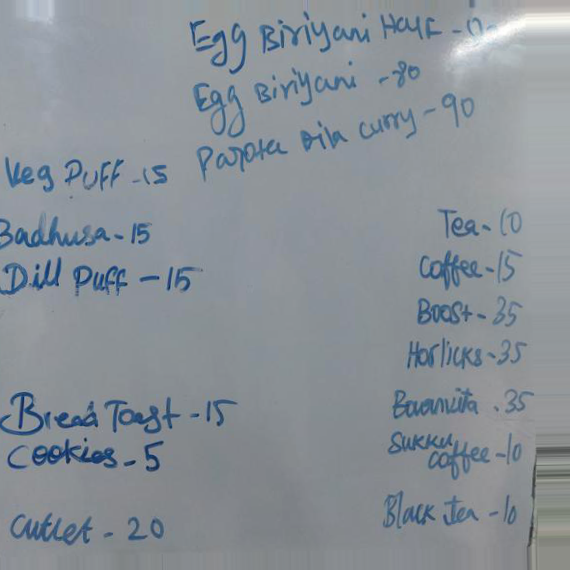 Egg Biriyani Half -
Egg Biriyani - 80
Parota curry - 90
Veg Puff - 15
Badhusa - 15
Dill Puff - 15
Bread Toast - 15
Cookies - 5
Cutlet - 20
Tea - 10
Coffee - 15
Boost - 35
Horlicks - 35
35
Sukku
Coffee - 10
Black Tea - 10